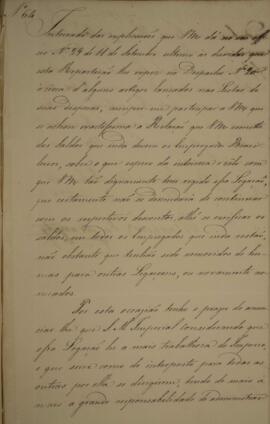 Nº 64
Inteirado das explicações que VM dá no seu offi-
cio Nº 29 de 11 de Setembro ultimo ás duvidas que
esta Repartição lhe expoz no Despacho Nº 20
ácerca d'alguns artigos lançados nas Contas de
suas despezas, cumpre-me participar a VM que
se achou exactissima a Relação que VM remette
dos saldos que inda devem os Empregados Brasi-
leiros, sobre o que espero da inteireza e zelo com
que VM tão dignamente tem regido essa Legação,
que certamente não se descuidará de continuar
com os respectivos descontos, até se verificar os
saldos, em todos os Empregados que inda restão,
não obstante que tenhão sido removidos de hu-
mas para outras Legaçoens, ou novamente no-
meados.
Por esta occasião tenho o prazer de annun-
ciar lhe que S. M. Imperial considerando que
essa Legação he a mais trabalhosa do Imperio,
e que serve como de interposto para todas as
outras por ella se dirigirem, tendo de mais a
mais a grande responsabilidade da administra-